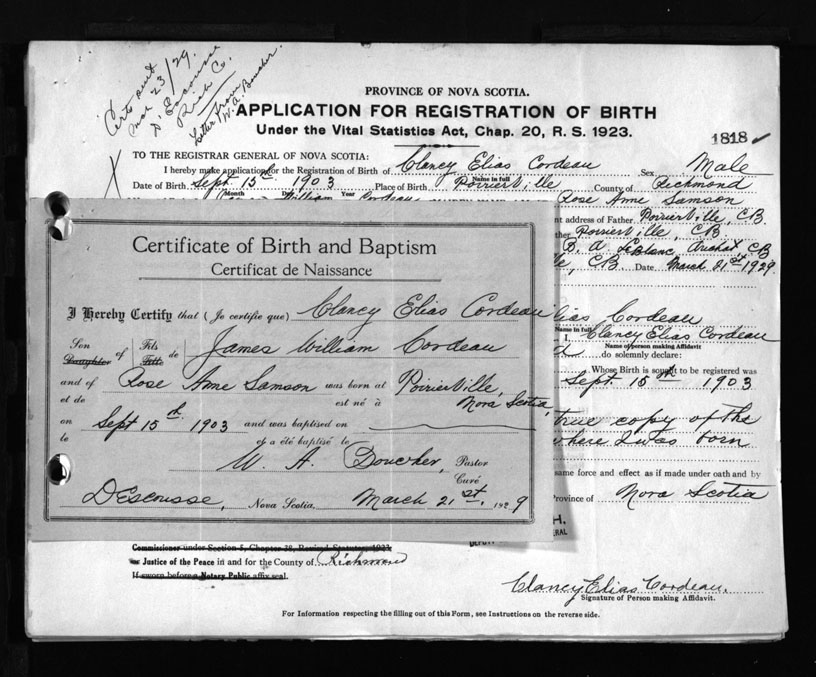 Certs sent
Mar 23/29.
D'Escousse
Rich Co.
Letter from
W. A. Boucher.
PROVINCE OF NOVA SCOTIA.
APPLICATION FOR REGISTRATION OF BIRTH
Under the Vital Statistics Act, Chap. 20, R. S. 1923.
1818
TO THE REGISTRAR GENERAL OF NOVA SCOTIA:
I hereby make application for the Registration of Birth of Clancy Elias Cordeau Sex Male
Name in full
Date of Birth Sept. 15th 1903 Place of Birth Poirierville County of Richmond
Month Day Year
William Cordeau Rose Anne Samson
nt address of Father Poirierville, C.B.
ther Poirierville, C.B.
B. A. LeBlanc, Arichat, CB
lle, C.B. Date March 21st 1929
Certificate of Birth and Baptism
Certificat de Naissance
I Hereby Certify that (Je certifie que) Clancy Elias Cordeau
Son Fils
Daughter of Fille de James William Cordeau
and of Rose Anne Samson was born at Poirierville,
et de est né à Nova Scotia
on Sept 15th 1903 and was baptised on
le et a été baptisé le
W. A. Boucher, Pastor
Curé
D'Escousse, Nova Scotia. March 21st. 1929
lias Cordeau
Name in full
Clancy Elias Cordeau
Name of person making Affidavit
do solemnly declare:
Whose Birth is sought to be registered was
Sept. 15th 1903
true copy of the
where I was born
ame force and effect as if made under oath and by
Province of Nova Scotia
H.
DEPUTY
RAL
Commissioner under Section 5, Chapter 38, Revised Statutes, 1923
Justice of the Peace in and for the County of Richmond
If sworn before a Notary Public affix seal.
Clancy Elias Cordeau.
Signature of Person making Affidavit.
For Information respecting the filling out of this Form, see Instructions on the reverse side.